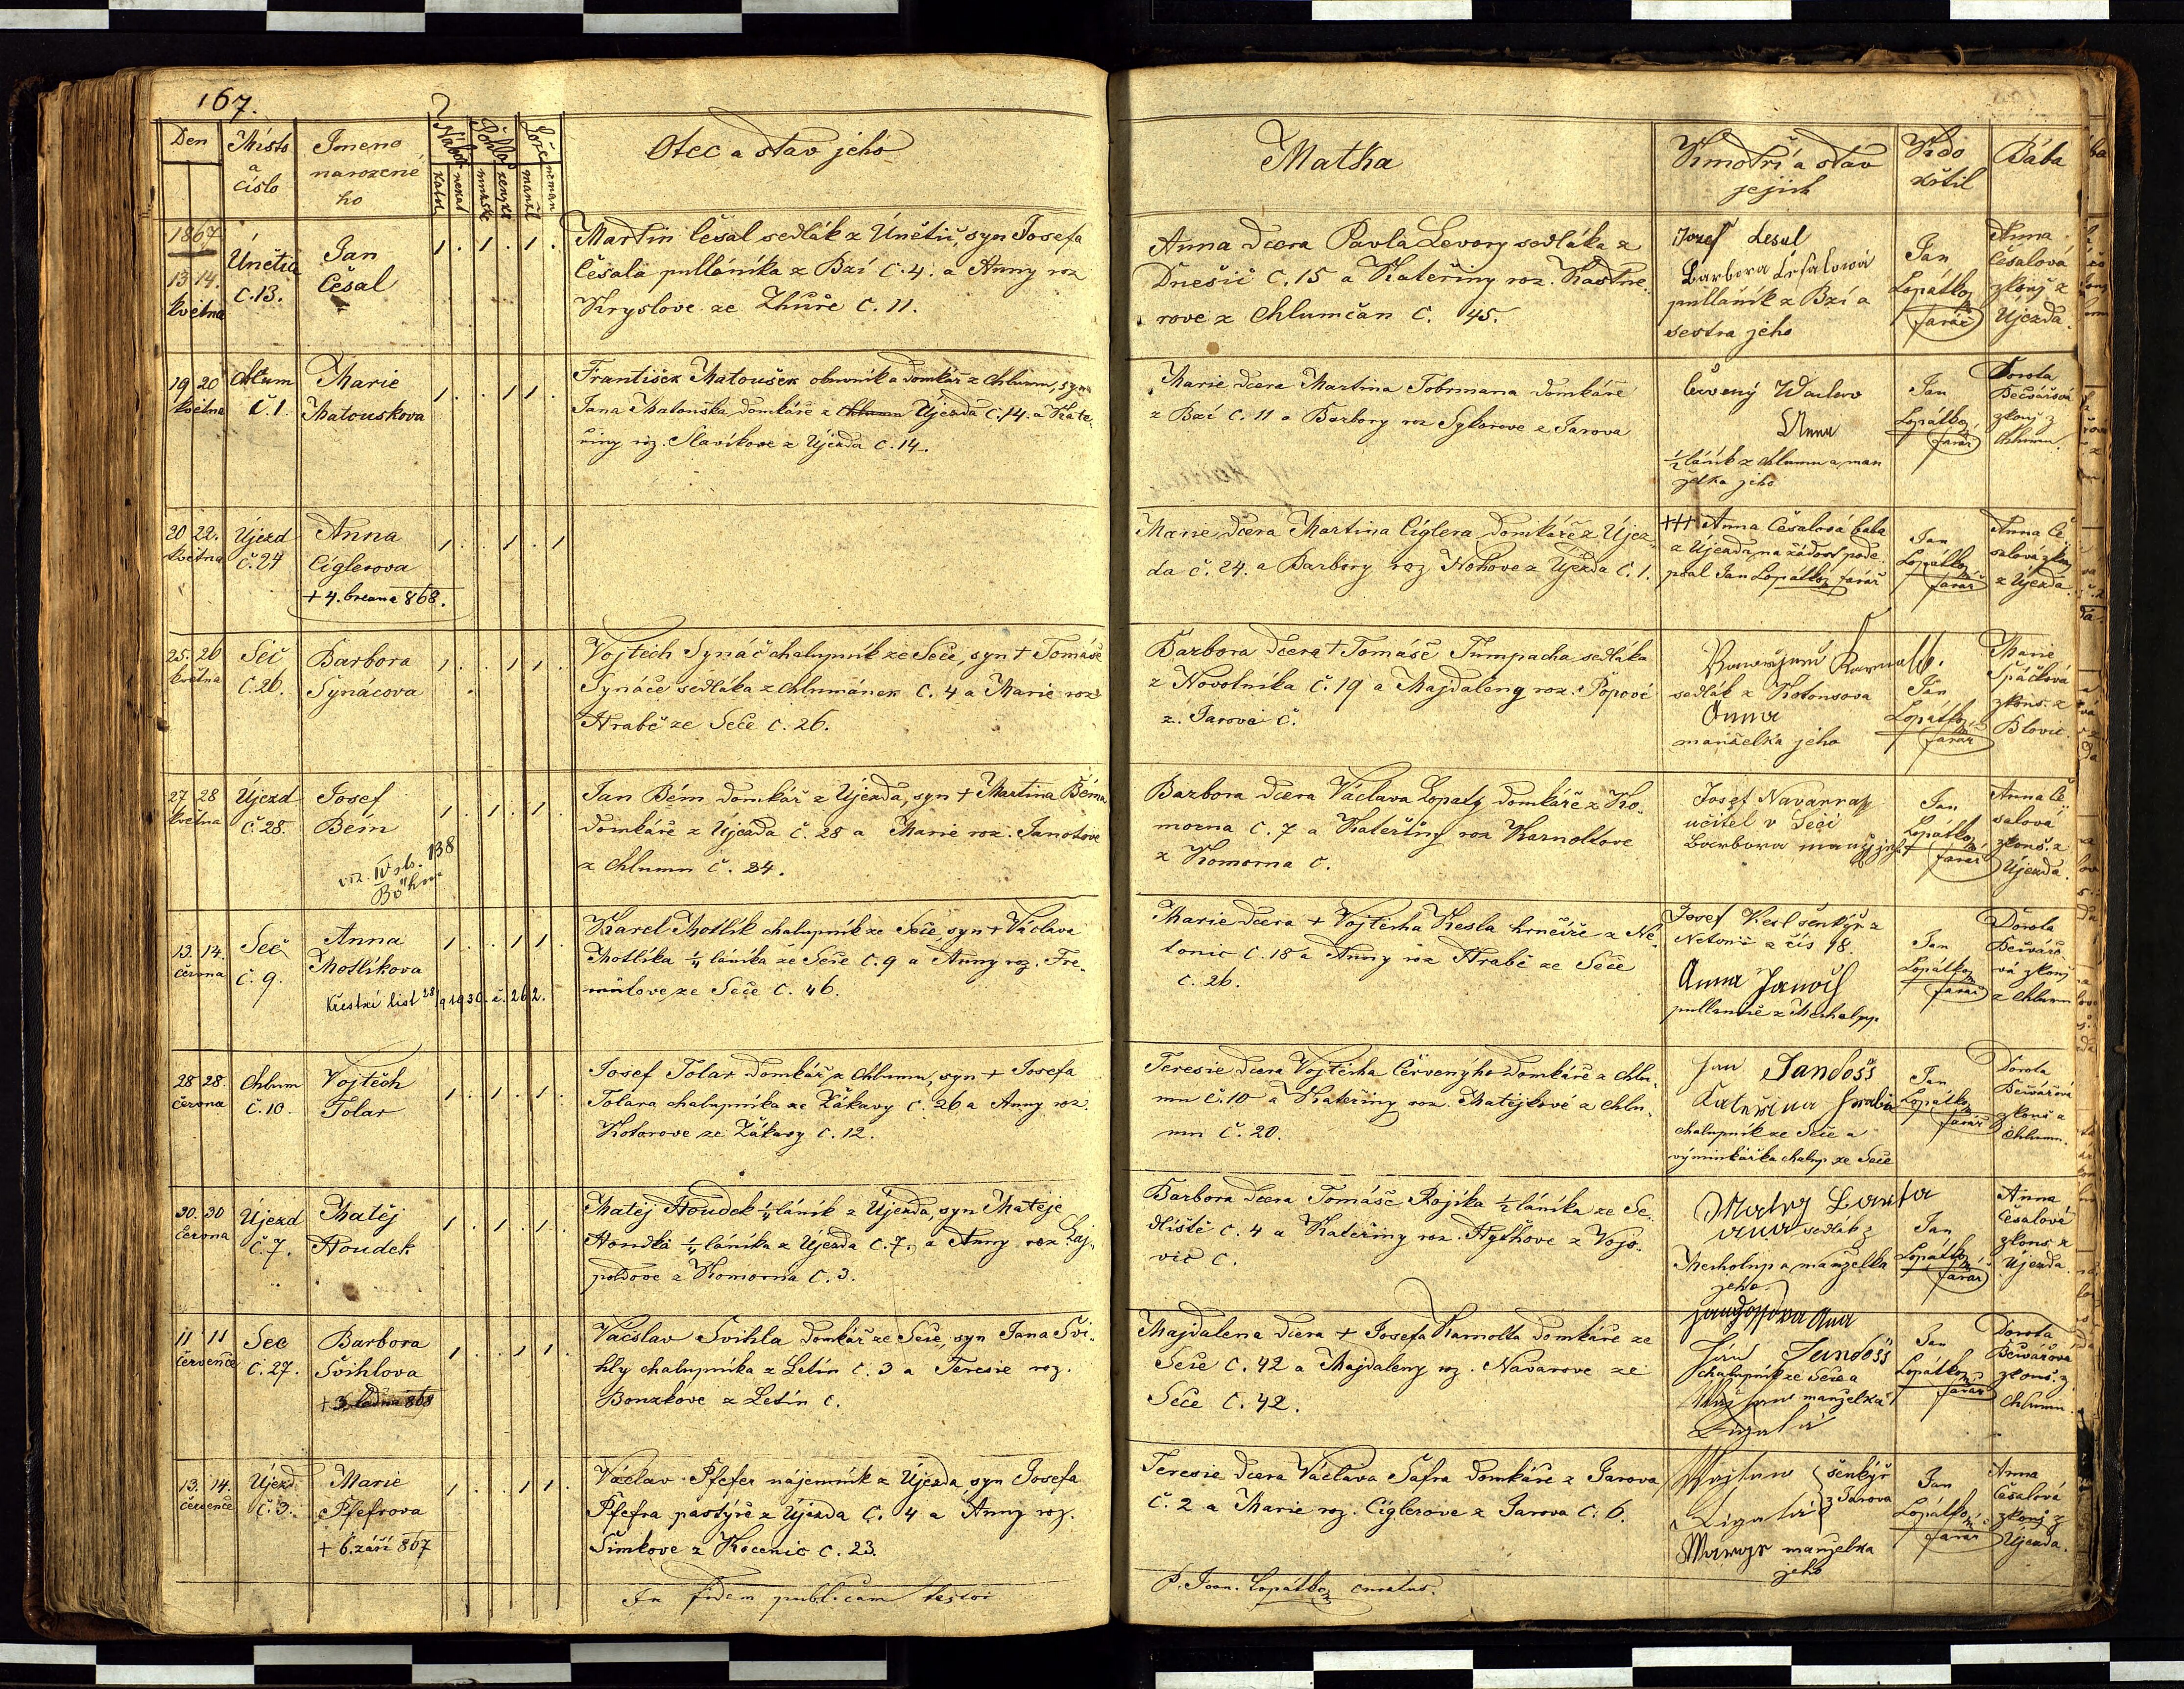 167.
Den
Místo
a
číslo
Jmeno
narozené
ho
Nábož
Pohla
Lože
katol
nekat
mužské
ženské
manžel
neman
Otec a stav jeho
Matka
Kmotři a stav
jejich
Kdo
křtil
Bába
1867
13 14.
května
Únětic
č.13.
Jan
Česal
1 . 1 . 1 .
Martin Česal sedlák z Únětic, syn Josefa
Česala pulláníka z Bzí č. 4. a Anny roz
Kryslove ze Zhůře č. 11.
Anna dcera Pavla Levory sedláka z
Dnešic č. 15 a Kateřiny roz. Kastne-
rove z Chlumčan č. 45.
Jozef Česal
Barbora Česalowá
pulláník z Bzí a
sestra jeho
Jan
Lopátka
farář
Anna
Česalová
zkouš z
Újezda.
19 20
května
Chlum
č. 1.
Marie
Matouskova
1 . . 1 1 .
František Matoušek obuvník a domkář z Chlumu, syn
Jana Matouška domkáře z Chlumu Újezda č. 14. a Kate-
řiny roz. Slavíkove z Újezda č. 14.
Marie dcera Martina Tobrmana domkáře
z Bzí č. 11 a Barbory roz Sykorove z Jarova
Červený Waclaw
Anna
1/2 láník z Chlumu a man
želka jeho
Jan
Lopátka
farář
Dorota
Bečvářová
zkouš z
Chlumu
20 22.
května
Újezd
č. 24
Anna
Ciglerova
+ 4. brezna 868.
1 . . 1 . 1
Marie dcera Martina Ciglera domkáře z Újez-
da č. 24. a Barbory roz Nohove z Újezda č. 1.
+++ Anna Česalová baba
z Újezda, na žádost pode
psal Jan Lopátka farář
Jan
Lopátka
farář
Anna Če
salová zkouš
z Újezda.
25. 26
května
Seč
č. 26.
Barbora
Synáčova
1 . . 1 1 .
Vojtěch Synáč chalupník ze Seče, syn + Tomáše
Synáče sedláka z Chlumánek č. 4 a Marie roz
Hrabě ze Seče č. 26.
Barbora dcera + Tomáše Tumpacha sedláka
z Novotníka č. 19 a Majdaleny roz. Popové
z. Jarova č.
sedlák z Kotousova
Anna
manželka jeho
Jan
Lopátka
farář
Marie
Špačková
zkouš. z
Blovic.
27 28
května
Újezd
č. 28.
Josef
Bém
viz. IV sb. 138
Böhm
1 . 1 . 1 .
Jan Bém domkář z Újezda, syn + Martina Béma
domkáře z Újezda č. 28 a Marie roz. Janotove
z Chlumu č. 24.
Barbora dcera Václava Lopaty domkáře z Ko-
morna č. 7 a Kateřiny roz Karnoltove
z Komorna č.
Josef Navarra
učitel v Seči
Barbora manž jeho
Jan
Lopátka
farář
Anna Če
salová
zkouš. z
Újezda.
13. 14.
června
Seč
č. 9.
Anna
Motlíkova
Křestní list 28/9 1930. č. 262.
1 . . 1 1 .
Karel Motlík chalupník ze Seče, syn + Václava
Motlíka 1/4 láníka ze Seče č. 9 a Anny roz. Fre-
ze Seče č. 46.
Marie dcera + Vojtěcha Kesla hrnčíře z Ne-
tonic č. 18 a Anny roz Hrabě ze Seče
č. 26.
Josef Kesl šenkýř z
Netonic čís 18.
Anna Janoch
pullanice z Merhalup
Jan
Lopátka
farář
Dorota
Bečvářo
vá zkouš
z Chlumu
28 28.
června
Chlum
č. 10.
Vojtěch
Tolar
1 . 1 . 1 .
Josef Tolar domkář z Chlumu, syn + Josefa
Tolara chalupníka ze Žákavy č. 26 a Anny roz.
Kotorove ze Žákavy č. 12.
Teresie dcera Vojtěcha Červenýho domkáře z Chlu-
mu č. 10 a Kateřiny roz. Matějkové z Chlu-
mu č. 20.
Jan Jandoss
Kateřina Hrabě
chalupník ze Seče a
výminkářka chalup ze Seče
Jan
Lopátka
farář
Dorota
Bečvářová
zkouš z
Chlumu.
30. 30
června
Újezd
č. 7.
Matěj
Houdek
1 . 1 . 1 .
Matěj Houdek 1/4 láník z Újezda, syn Matěje
Houdka 1/4 láníka z Újezda č. 7, a Anny roz Laj-
poldove z Komorna č. 3.
Barbora dcera Tomáše Rojíka 1/2 láníka ze Se-
dliště č. 4 a Kateřiny roz. Hythove z Vojo-
vic č.
sedlák z
Merholup a manželka
jeho
Jan
Lopátka
farář
Anna
Česalová
zkouš. z
Újezda.
11 11
července
Seč
č. 27.
Barbora
Švihlova
+ 3. ledna 868
1 . . 1 1 .
Václav Švihla domkář ze Seče, syn Jana Švi-
hly chalupníka z Letin č. 3 a Teresie roz.
Bouzkove z Letin č.
Majdalena dcera + Josefa Karnolta domkáře ze
Seče č. 42 a Majdaleny roz. Navarove ze
Seče č. 42.
Jandossova Ana
Jan Jandoss
chalupník ze Seče a
manželka
Jan
Lopátka
farář
Dorota
Bečvářova
zkouš. z
Chlumu.
13. 14.
července
Újezd
č. 3.
Marie
Pfefrova
+ 6. září 867
1 . . 1 1 .
Václav Pfefer nájemník z Újezda, syn Josefa
Pfefra pastýře z Újezda č. 4 a Anny roz.
Šimkove z Kocenic č. 23.
Teresie dcera Václava Šafra domkáře z Jarova
č. 2 a Marie roz. Ciglerove z Jarova č. 6.
šenkýř
z Jarova
manželka
jeho
Jan
Lopátka
farář
Anna
Česalová
zkouš z
Újezda.
In fidem publicam testor
P. Joan. Lopátka curatus.